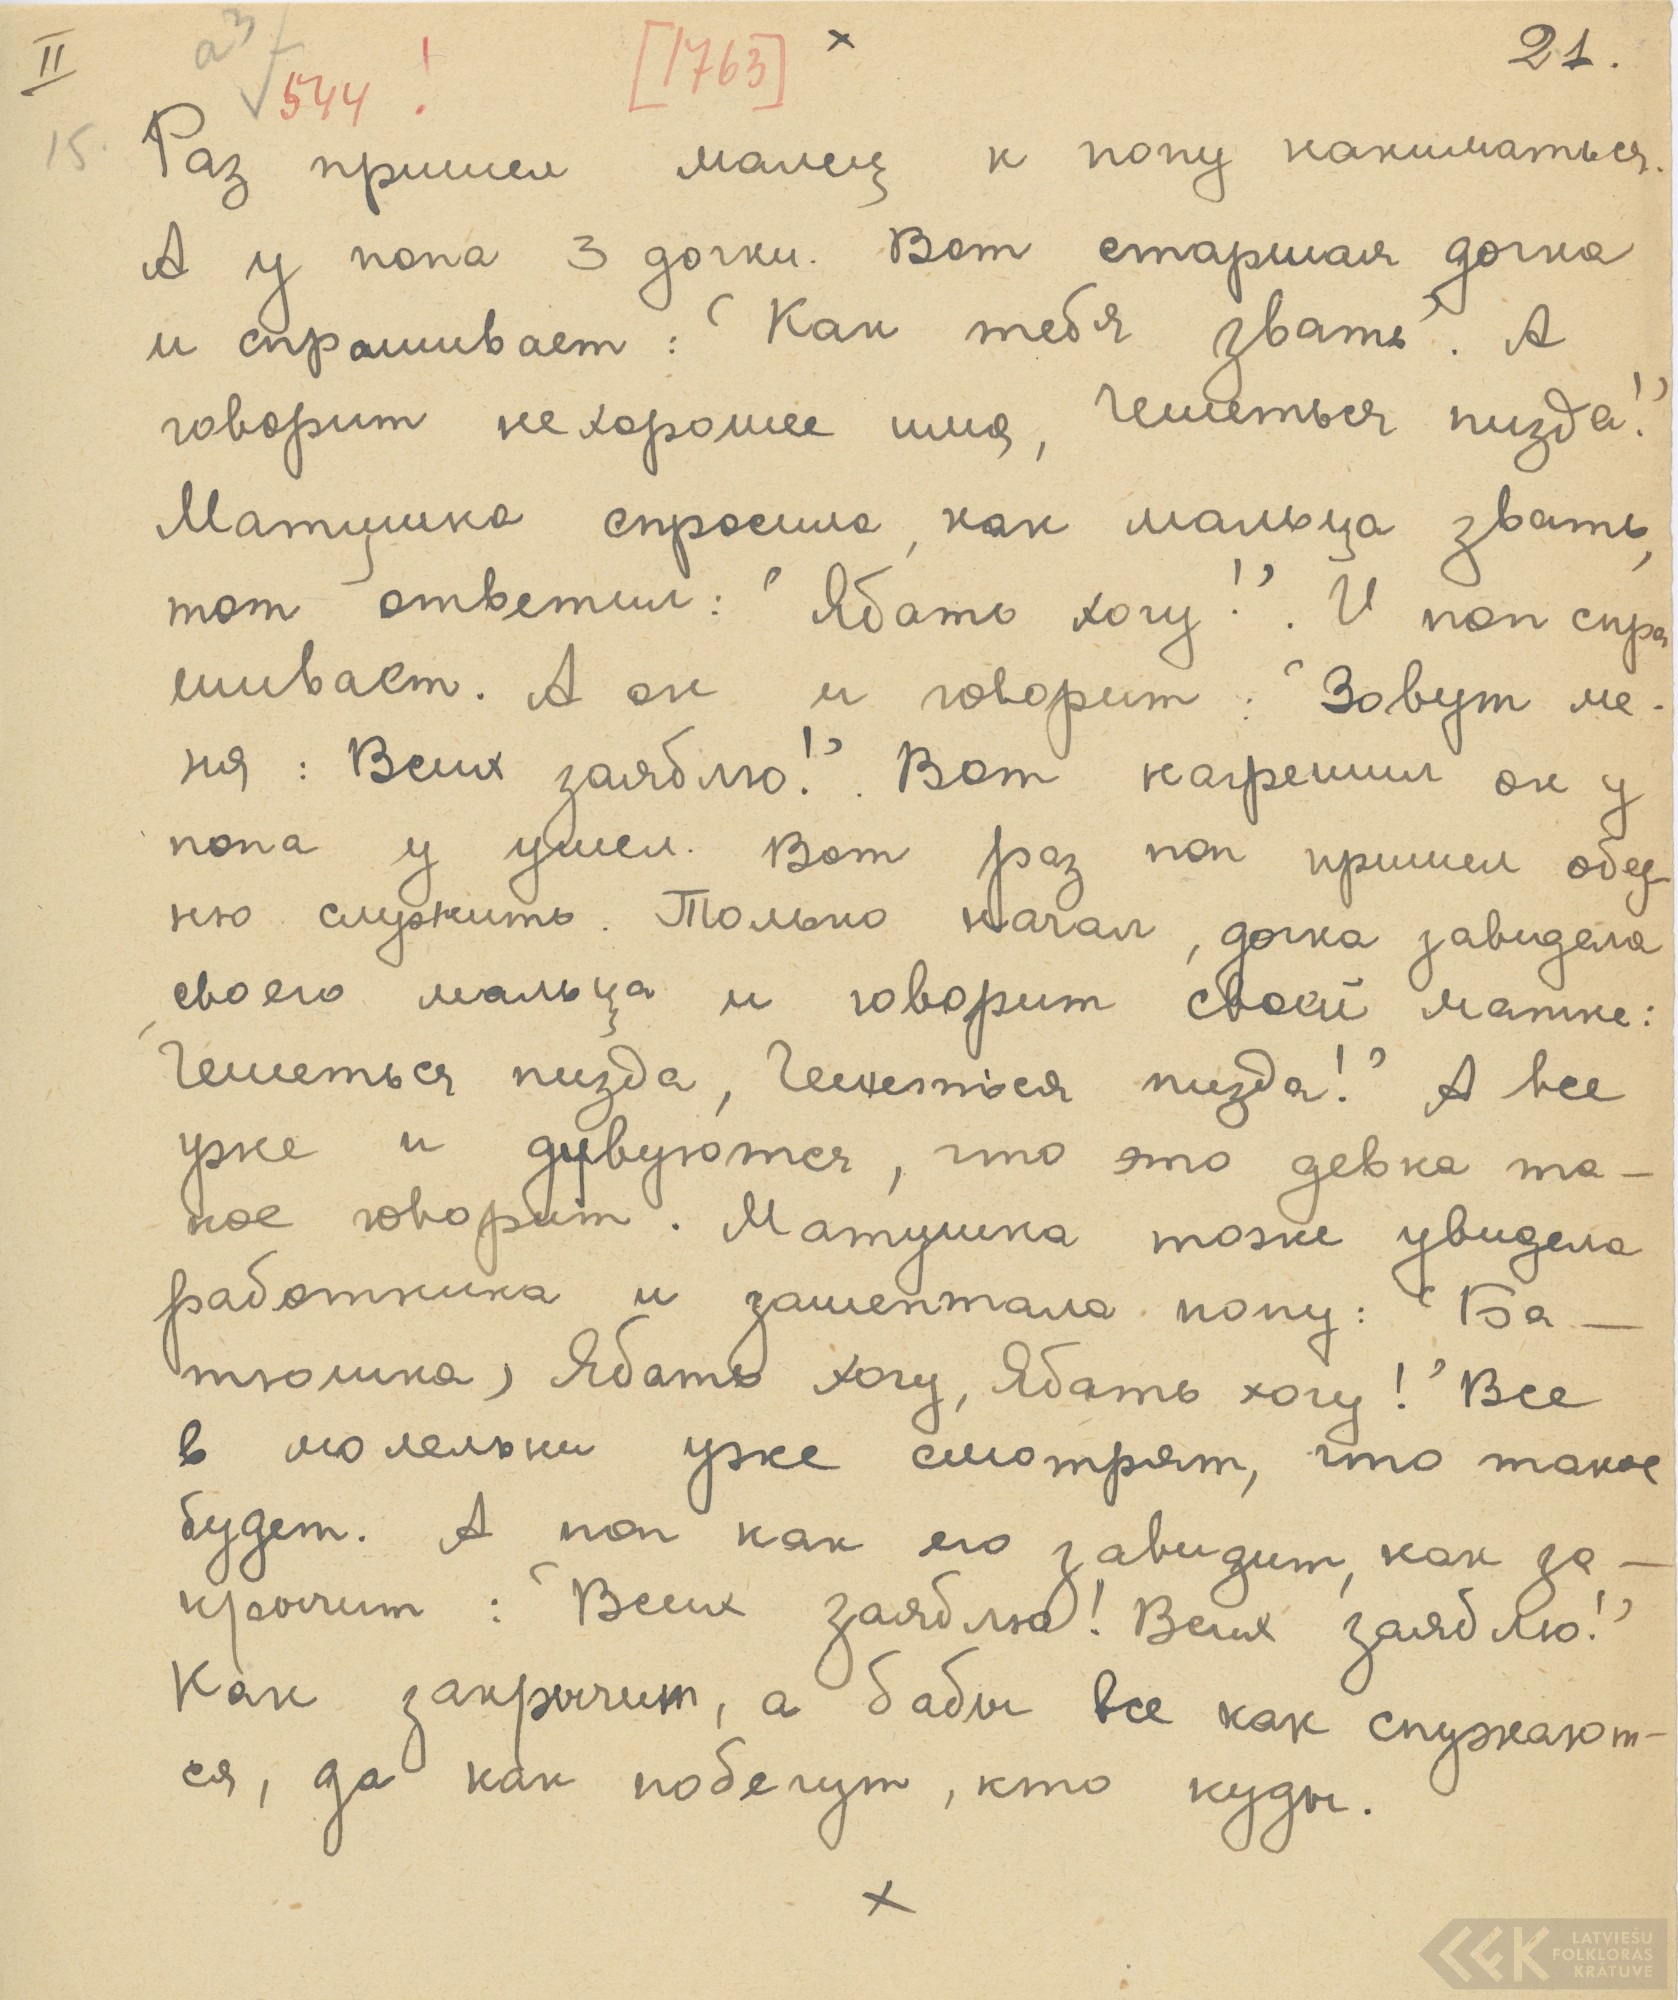 II
а³
544 !
[1763]
×
21.
15. Раз пришел малец к попу наниматься.
А у попа 3 дочки. Вот старшая дочка
и спрашивает: ‘Как тебя звать’. А
говорит нехорошее имя, Чешеться пизда!’
Матушка спросила, как мальца звать,
тот ответил: ‘Ябать хочу!’. И поп спра
шивает. А он и говорит: ‘Зовут ме-
ня: Всих заяблю!’. Вот нагрешил он у
попа у ушел. Вот раз поп пришел обед-
ню служить. Только начал, дочка завидела
своего мальца и говорит своей матке:
‘Чешеться пизда, Чешеться пизда!’ А все
уже и дивуются, что это девка та-
кое говорит. Матушка тоже увидела
работника и зашептала попу: ‘Ба-
тюшка, Ябать хочу, Ябать хочу!’ Все
в молельни уже смотрят, что такое
будет. А поп как его завидит, как за-
крычит: ‘Всих заяблю! Всих заяблю!’
Как закрычит, а бабы все как спужают-
ся, да как побегут, кто куды.
×
LATVIEŠU
FOLKLORAS
KRĀTUVE